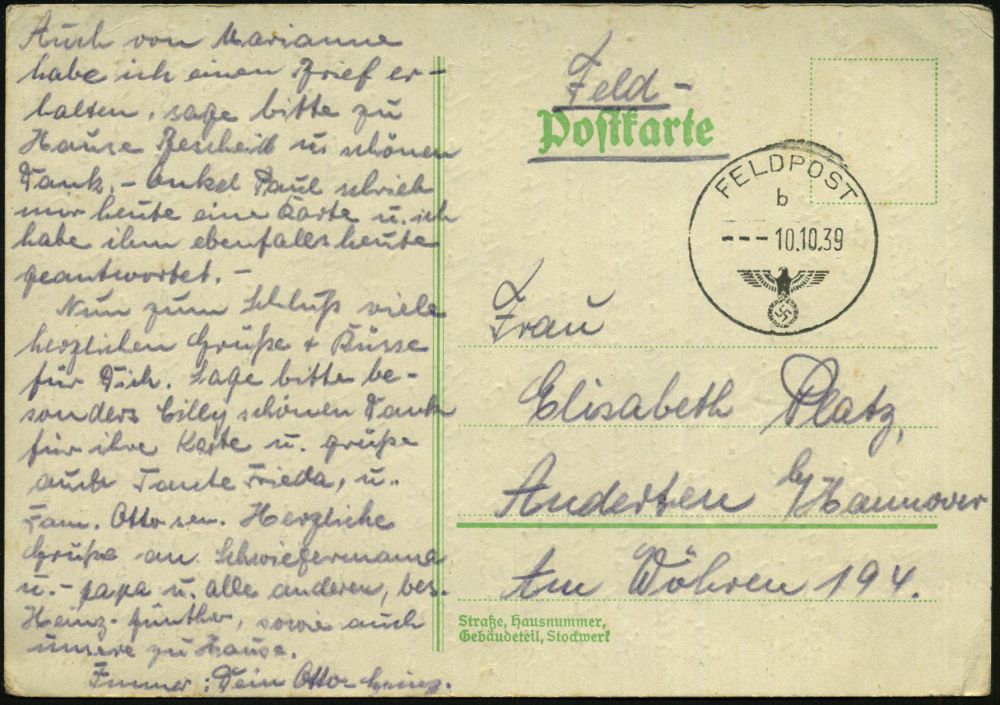 Auch von Marianne
habe ich einen Brief er-
halten, sage bitte zu
Hause Bescheid u. schönen
Dank. - Onkel Paul schrieb
mir heute eine Karte u. ich
habe ihm ebenfalls heute
geantwortet. -
Nun zum Schluß viele
herzlichen Grüße + Küsse
für Dich. Sage bitte be-
sonders Cilly schönen Dank
für ihre Karte u. grüße
auch Tante Frieda, u.
Fam. Otto sen. Herzliche
Grüße an Schwiegermama
u. - papa u. alle anderen, bes.
Heinz-Günther, sowie auch
unsere zu Hause.
Immer: Dein Otto-Heinz.
Feld -
Postkarte
FELDPOST
b
--- 10.10.39
Frau
Elisabeth Platz,
Anderten b/Hannover
Am Wöhren 194.
Straße, Hausnummer,
Gebäudeteil, Stockwerk